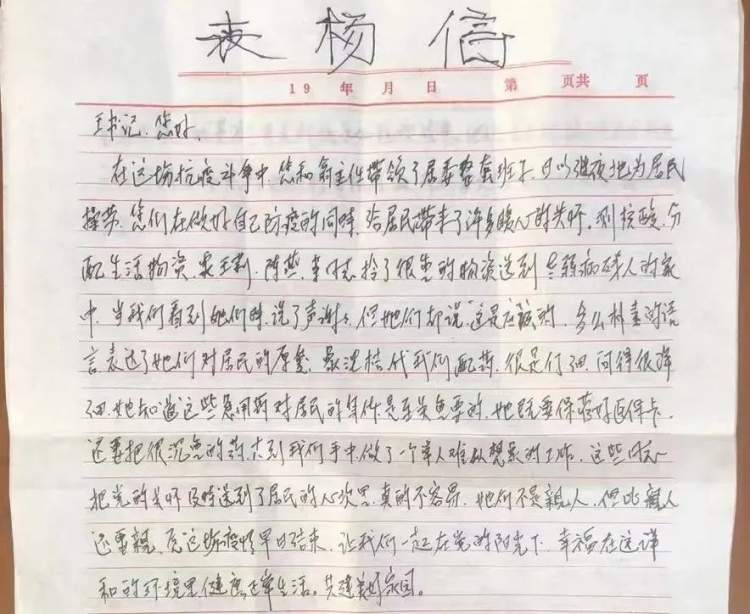 表扬信
19 年 月 日 第 页共 页
王书记、您好,
在这场抗疫斗争中,您和俞主任带领了居委整套班子,日以继夜地为居民
操劳,您们在做好自己防疫的同时,给居民带来了许多暖心的关怀。测核酸、分
配生活物资,王莉、陈燕、等同志拎了很重的物资送到老弱病残人的家
中,当我们看到她们时,说了声谢谢,但她们都说“这是应该的”,多么朴素的语
言表达了她们对居民的厚爱,沈桔代我们配药,很是仔细,问得很详
细,她知道这些急用药对居民的身体是至关重要的,她既要保管好医保卡,
还要把很沉重的药送到我们手中,做了一个常人难以想象的工作,这些同志
把党的关怀及时送到了居民的心坎里,真的不容易,她们不是亲人,但比亲人
还要亲,愿这场疫情早日结束,让我们一起在党的阳光下,幸福在这详
和的环境里健康正常生活。共建美好家园。